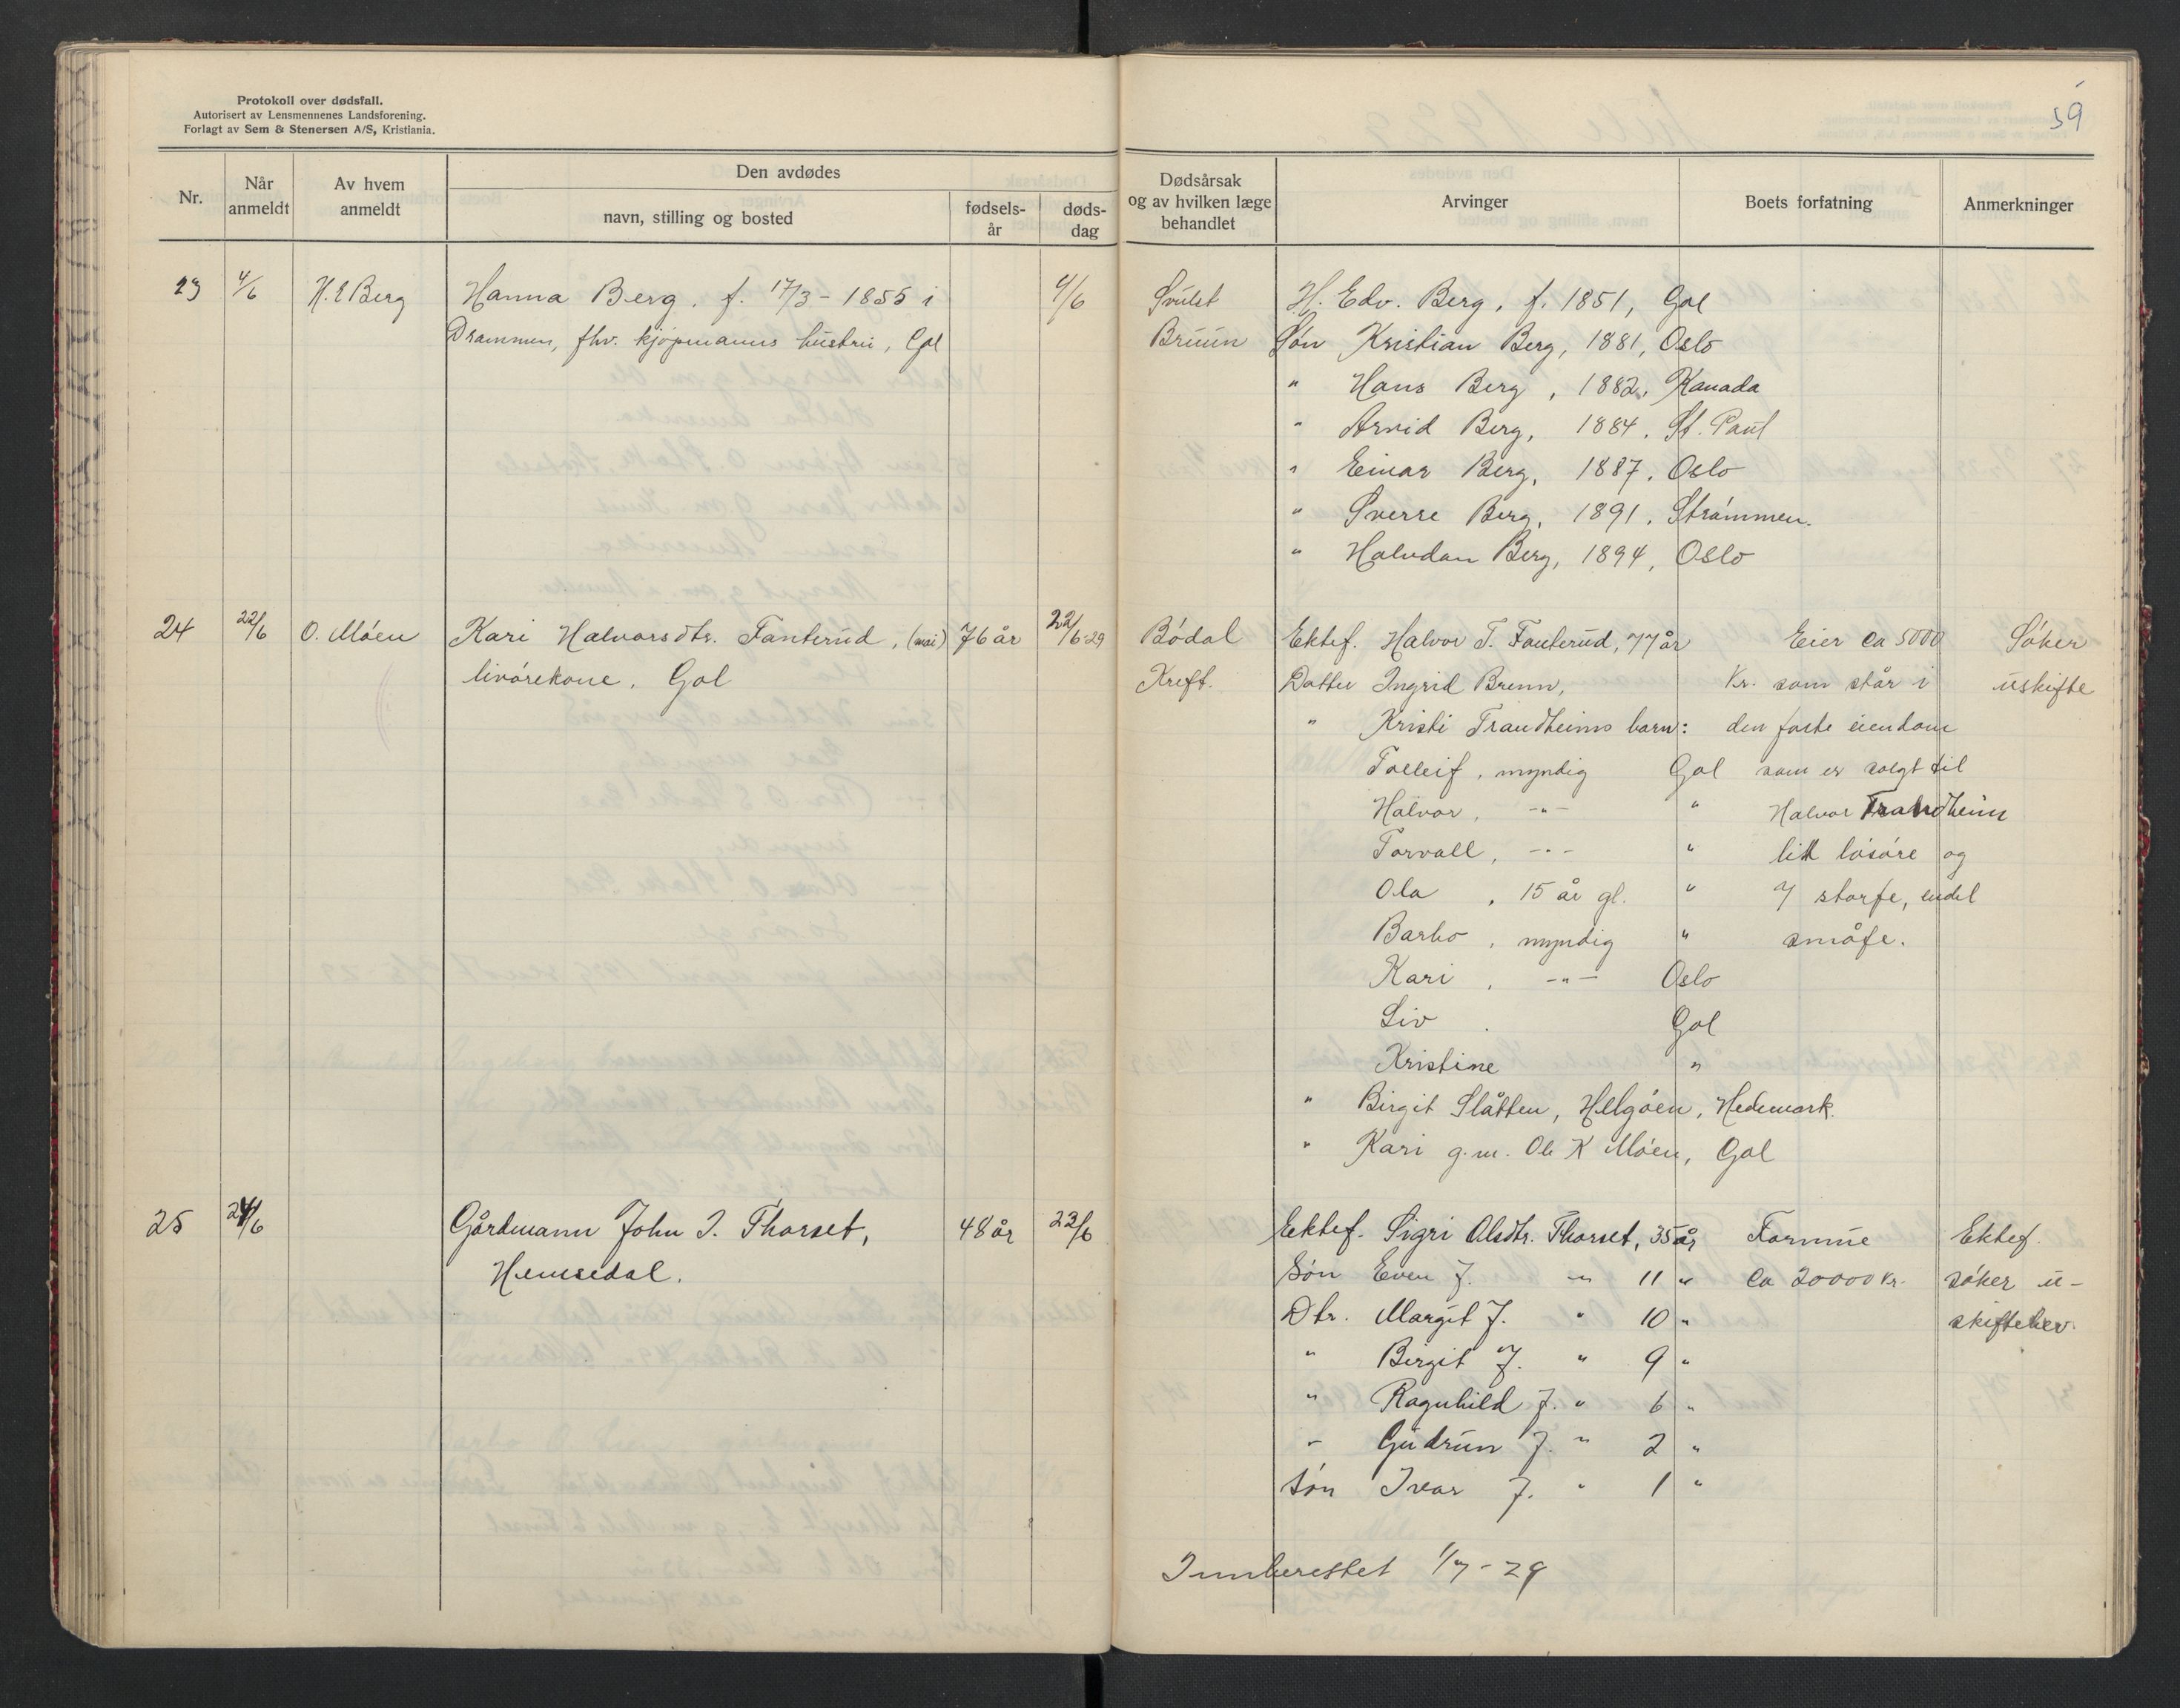 Protokoll over dødsfall.
Autorisert av Lensmennenes Landsforening.
Forlagt av Sem & Stenersen A/S, Kristiania.
59
Nr.
Når anmeldt
Av hvem anmeldt
Den avdødes
navn, stilling og bosted
fødselsår
dødsdag
Dødsårsak og av hvilken læge behandlet
Arvinger
Boets forfatning
Anmerkninger
23 4/6 H. E Berg Hanna Berg. f. 17/3 - 1855 i 4/6 Svulst H. Edv. Berg, f. 1851, Gol
Drammen, fhv. kjøpmanns hustru, Gol Bruun Søn Kristian Berg, 1881, Oslo
" Hans Berg, 1882, Kanada
" Arvid Berg, 1884, St. Paul
" Einar Berg, 1887, Oslo
" Sverre Berg, 1891, Strømmen.
" Halvdan Berg, 1894, Oslo
24 22/6 O. Møen Kari Halvorsdtr. Fanterud, (mai) 76 år 22/6-29 Bødal Ektef. Halvor T. Fanterud, 77 år Eier ca 5000 Søker
livørekone, Gol Kreft. Datter Ingrid Brenn, kr. som står i uskifte
" Kristi Trandheims barn: den faste eiendom
Tolleif, myndig Gol som er solgt til
Halvor, -"- " Halvor Trandheim
Torvall, -"- " litt løsøre og
Ola, 15 år gl. " 7 storfe, endel
Barbo, myndig " småfe.
Kari, -"- Oslo
Liv Gol
Kristine "
" Birgit Slåtten, Helgøen, Hedemark.
" Kari g.m. Ole K Møen, Gol
25 24/6 Gårdmann John I. Thorset, 48 år 22/6 Ektef. Sigri Olsdtr. Thorset, 35 år Formue Ektef.
Hemsedal. Søn Even J. " 11 " ca 20000 kr. søker u-
Dtr. Margit J. " 10 " skiftebev.
" Birgit J. " 9 "
" Ragnhild J. " 6 "
" Gudrun J. " 2 "
Søn Ivar J. " 1 "
Innberettet 1/7-29